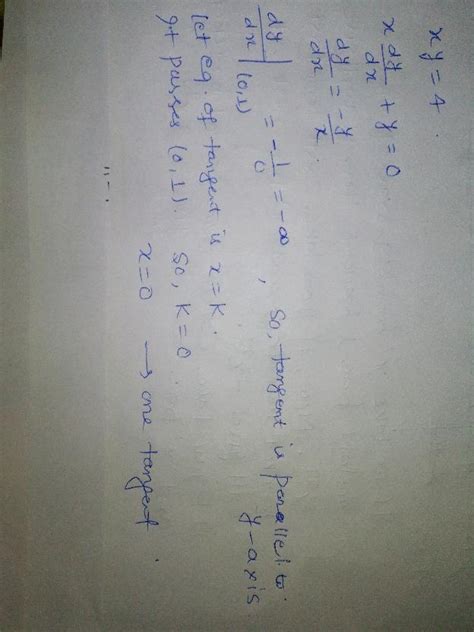 xy = 4.
x dy/dx + y = 0
dy/dx = -y/x.
dy/dx |(0,1) = -1/0 = -∞, So, tangent is parallel to y-axis.
let eq. of tangent is x = k.
It passes (0, 1). So, k = 0
x = 0 → one tangent.